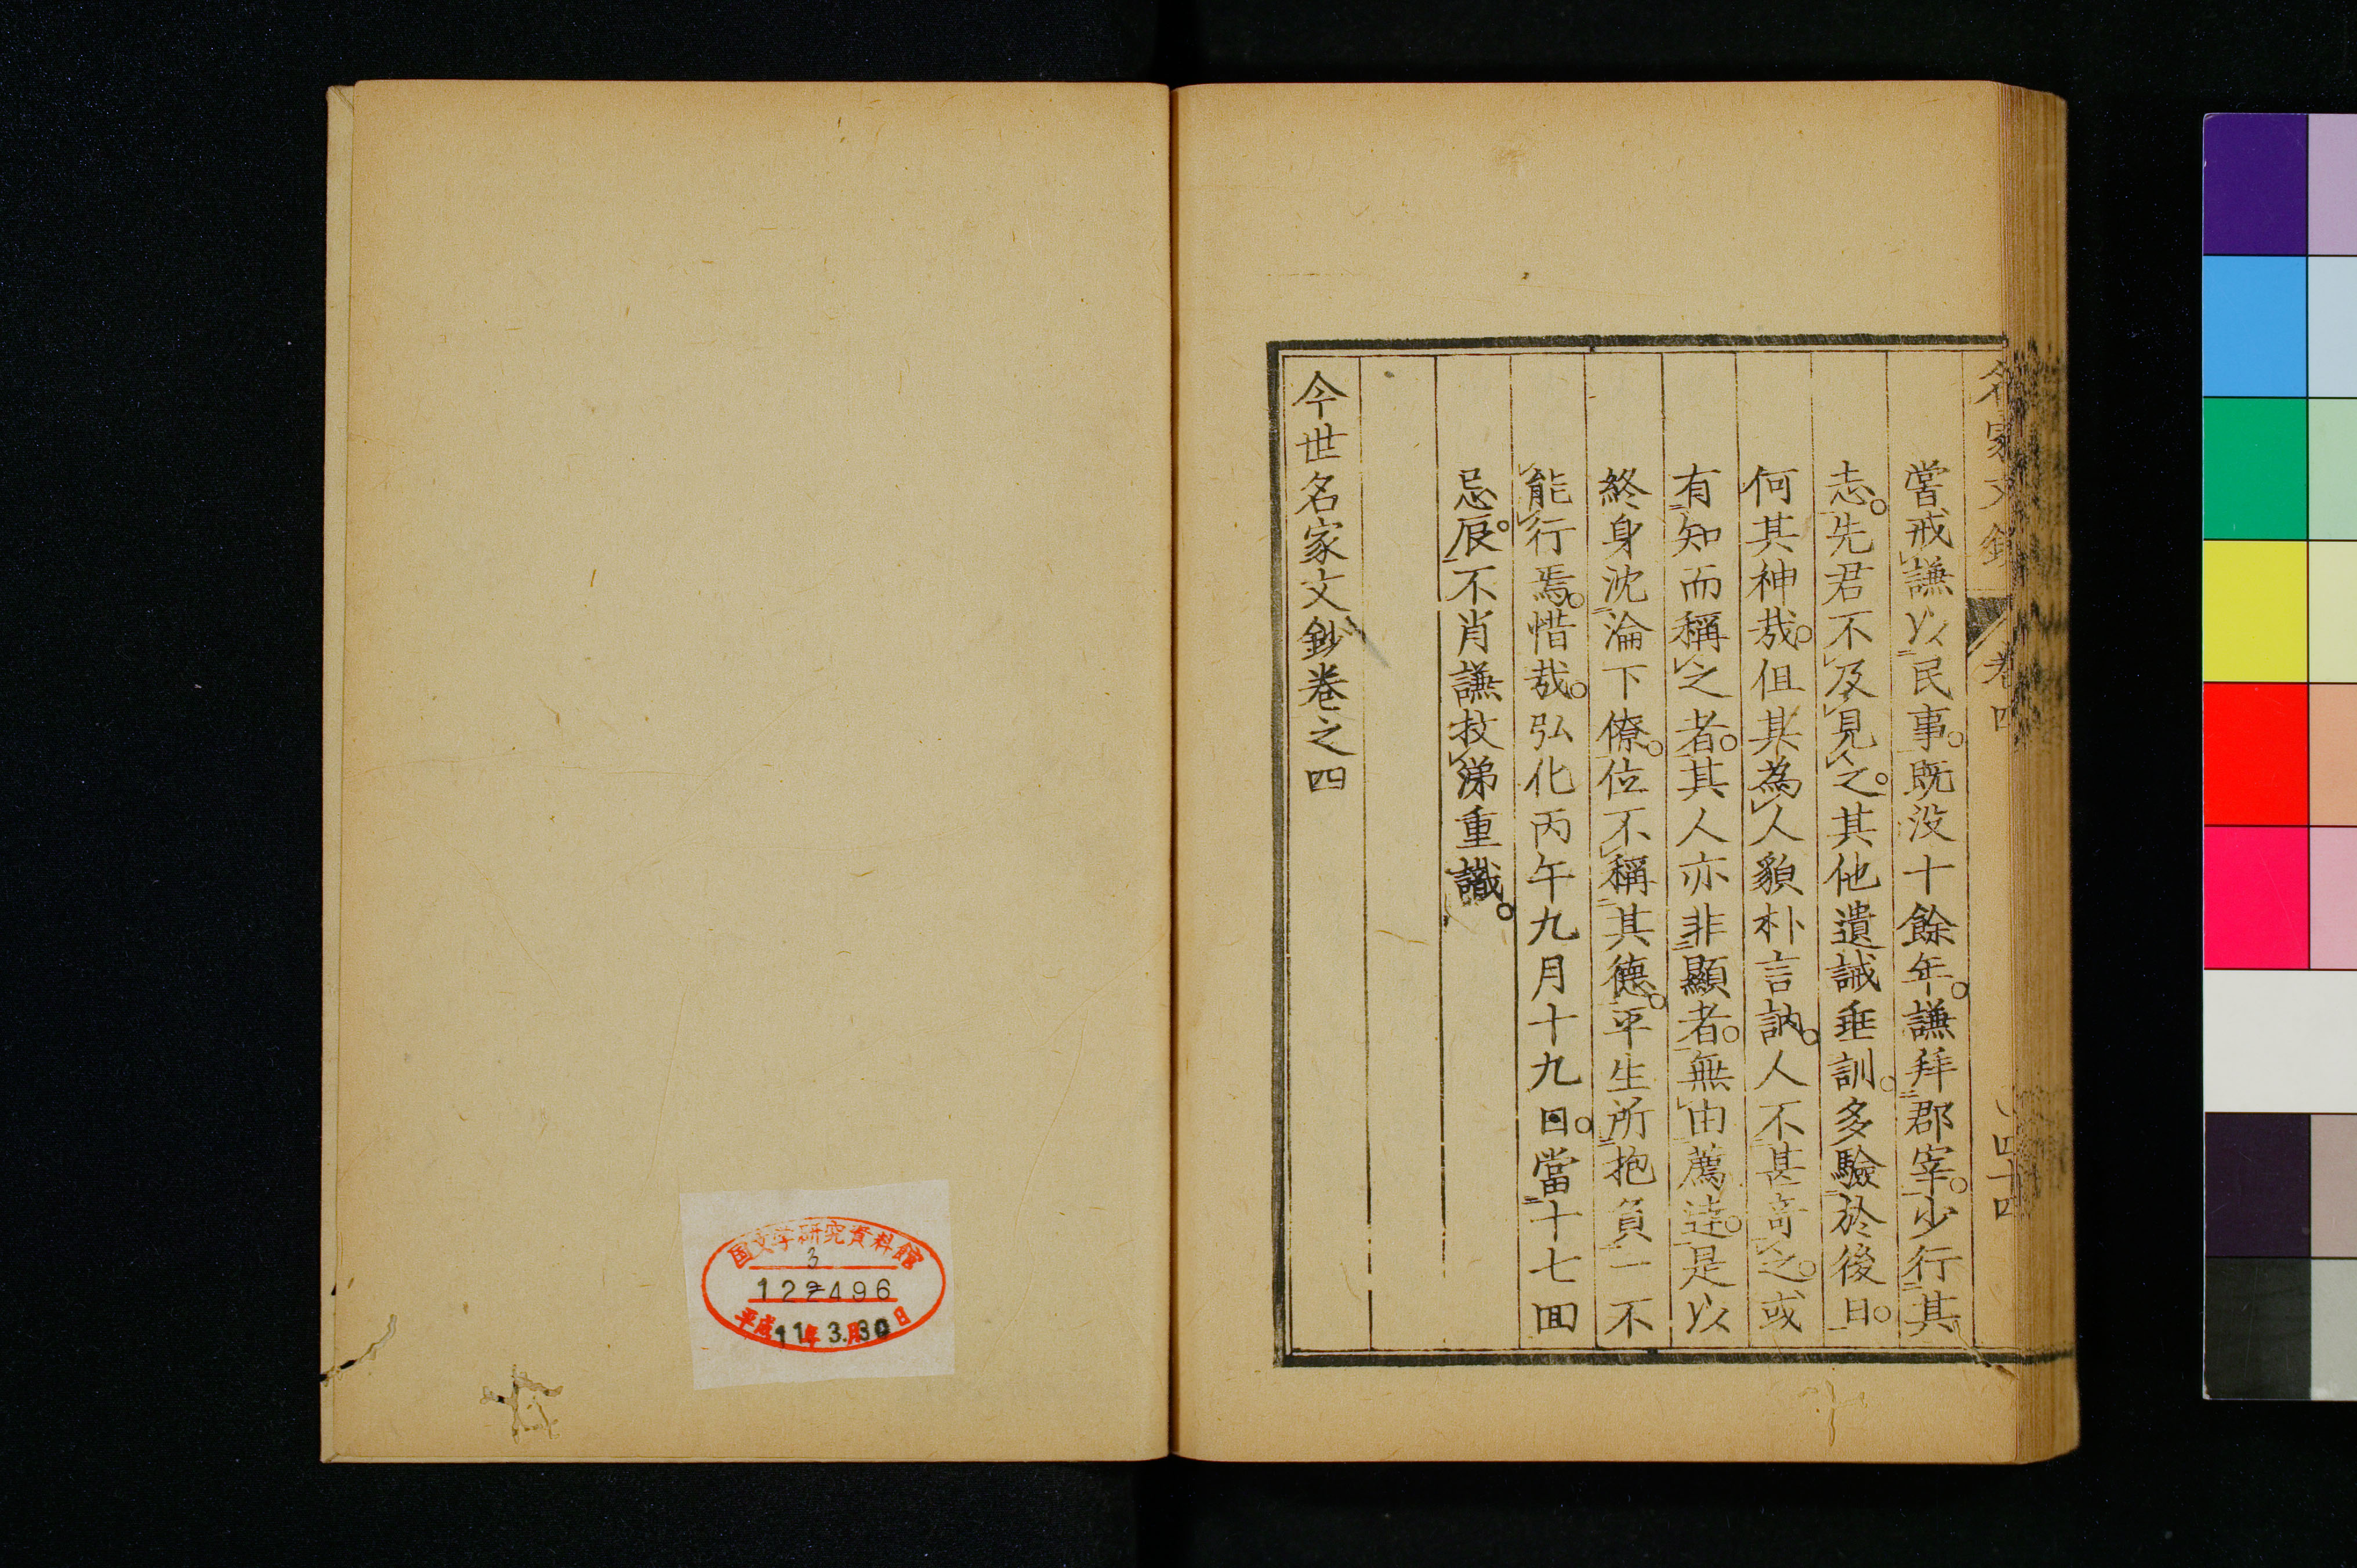 名家文鈔 卷四 四十四
嘗戒謙以民事。既没十餘年。謙拜郡宰。少行其
志。先君不及見之。其他遺誡垂訓。多驗於後日。
何其神哉。但其為人貌朴言訥。人不甚奇之。或
有知而稱之者。其人亦非顯者。無由薦達。是以
終身沈淪下僚。位不稱其德。平生所抱負一不
能行焉。惜哉。弘化丙午九月十九日。當十七回
忌辰。不肖謙抆涕重識。
今世名家文鈔卷之四
国文学研究資料館
3
122496
平成11年3.月30日